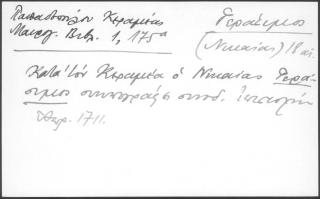 Παπαδοπούλου Κεραμέως
Μαυρογ. Βιβλ. 1, 175α
Γεράσιμος
(Νικαίας) 18 αι.
Κατὰ τὸν Κεραμέα ὁ Νικαίας Γερά-
σιμος συνυπογράφει συνοδ. ἐπιστολήν
1711.